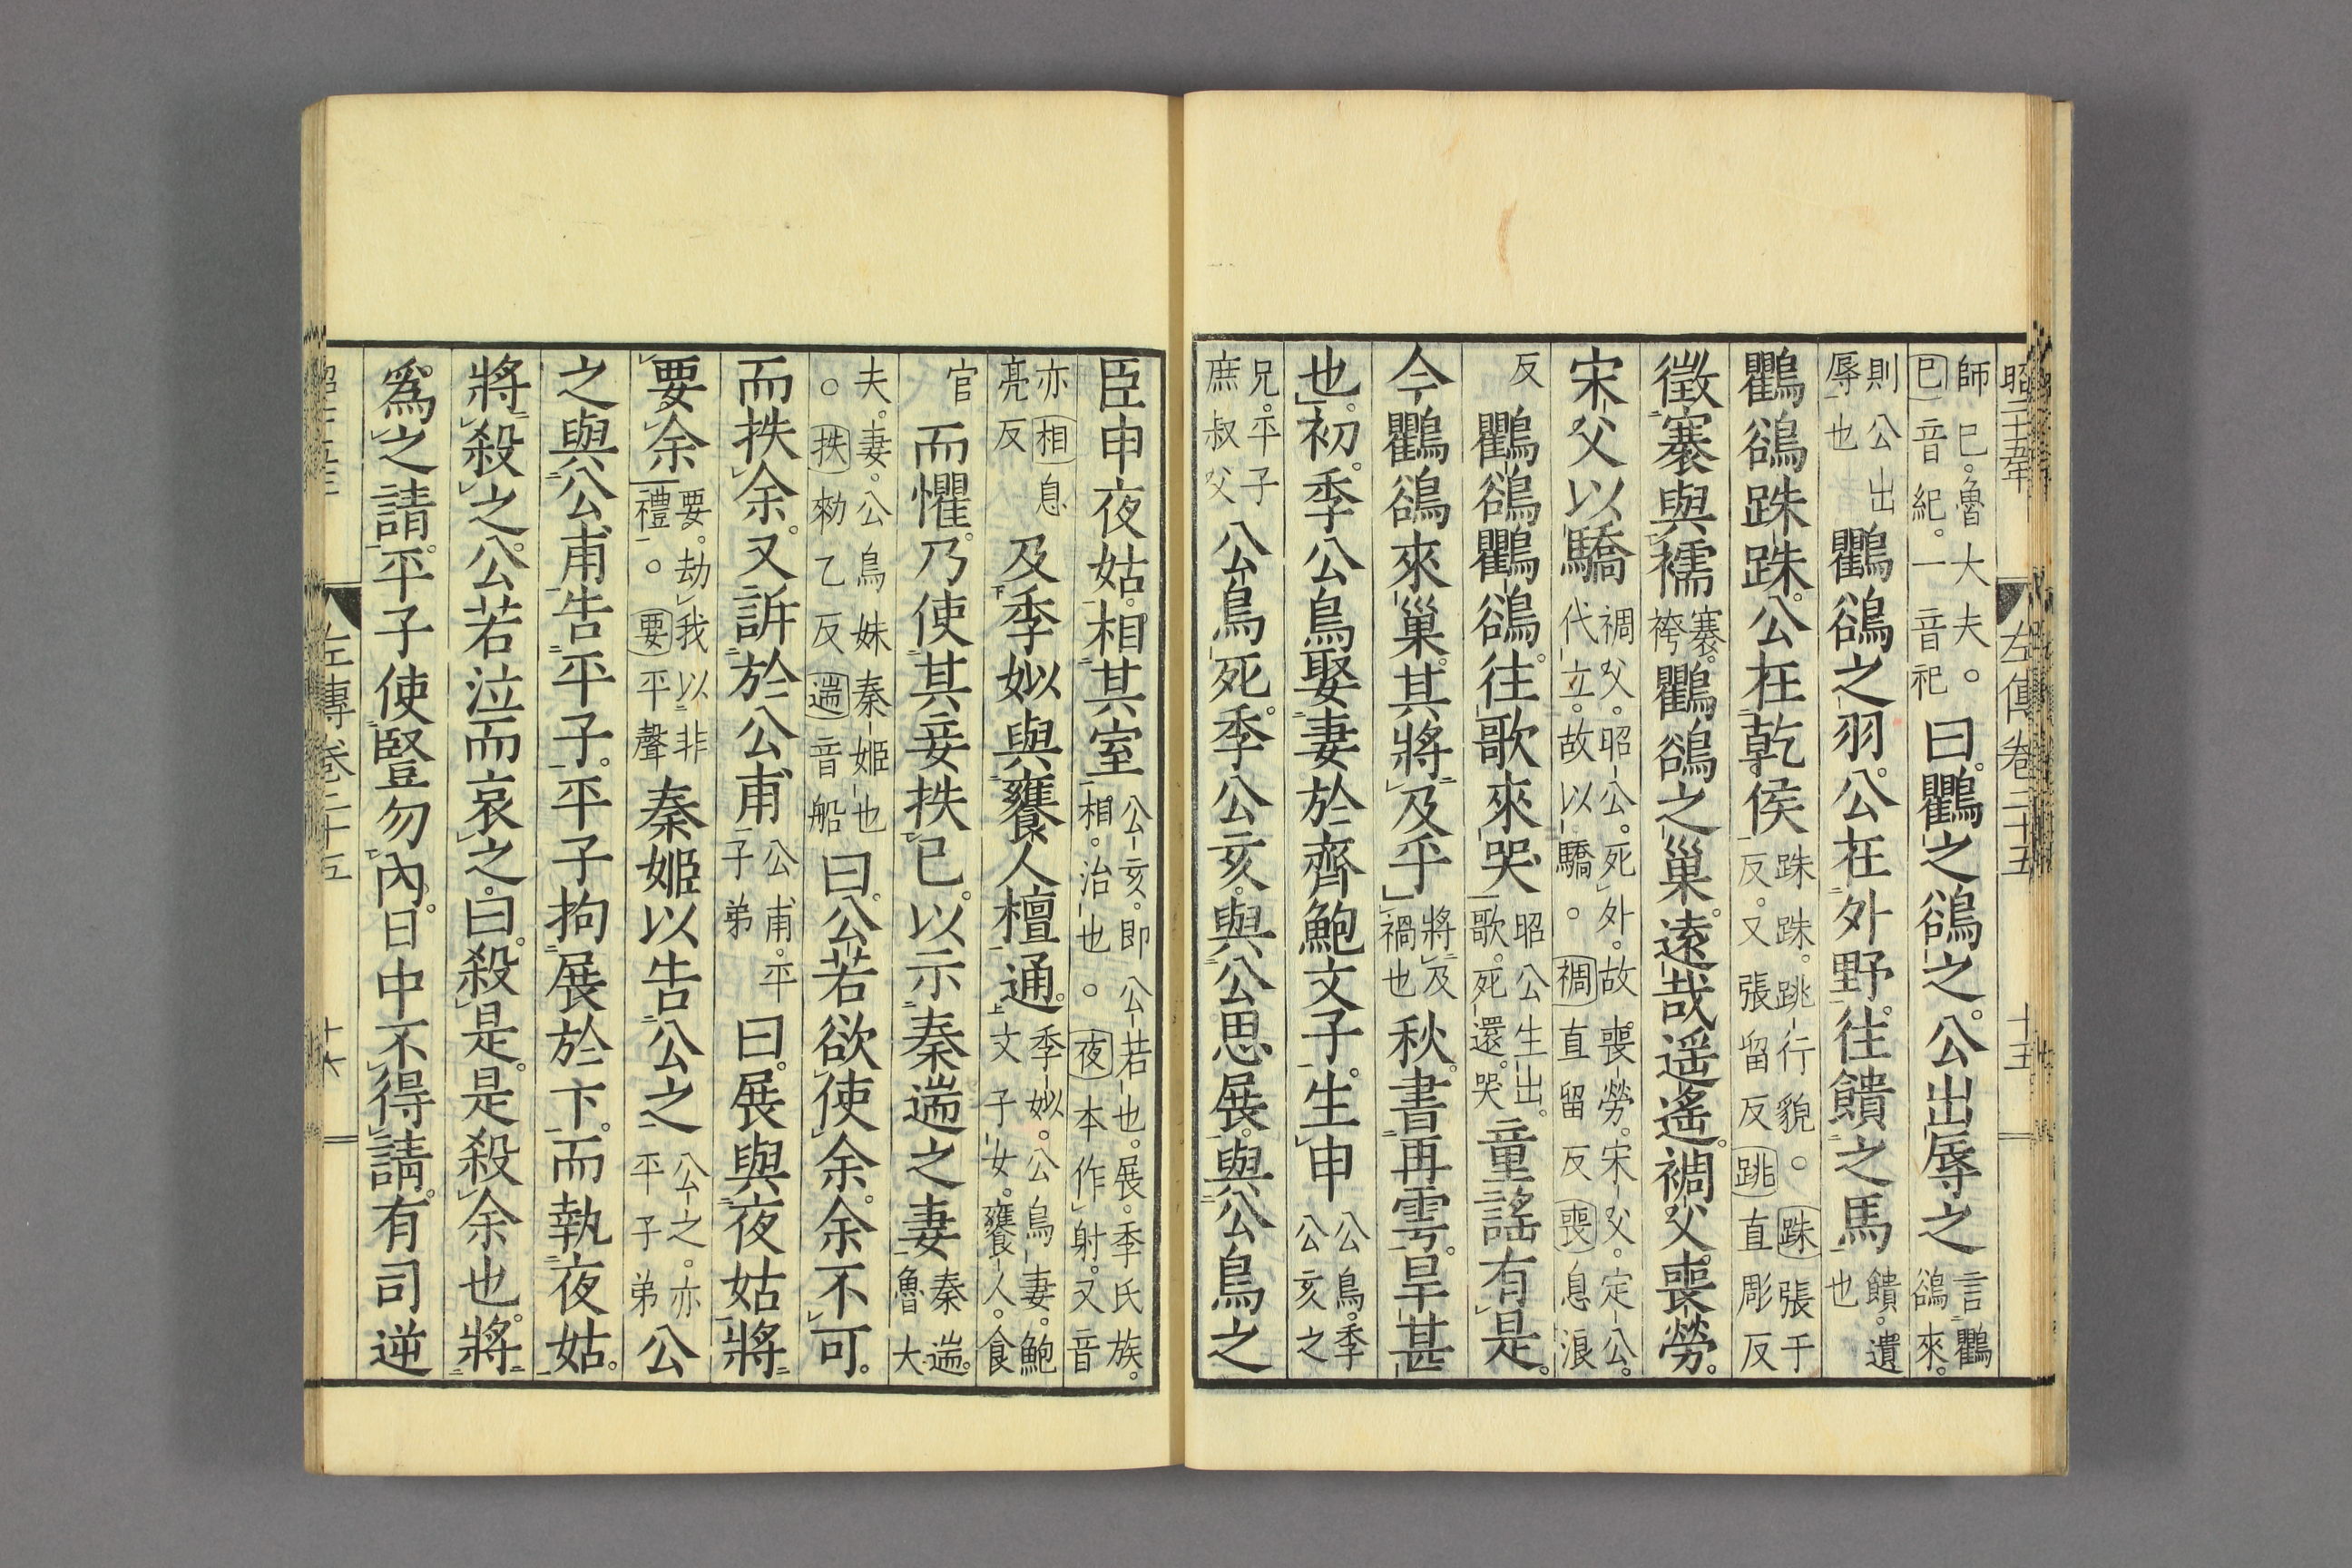 昭二十五年　左傳卷二十五　十五
師已。魯大夫。
巳音紀。一音祀
曰。鸜之鵒之。公出辱之
言鸜
鵒來。
則公出
辱也
鸜鵒之羽。公在外野。往饋之馬
饋。遺
也
鸜鵒跦跦。公在乾侯
跦跦。跳行貌。跦張于
反。又張留反跳直彫反
徵褰與襦
褰。
袴
鸜鵒之巢。遠哉遥遙。裯父喪勞。
宋父以驕
裯父。昭公。死外。故喪勞。宋父。定公。
代立。故以驕。裯直留反喪息浪
反
鸜鵒鸜鵒。往歌來哭
昭公生出。
歌。死還。哭
童謠有是。
今鸜鵒來巢。其將及乎
將及
禍也
秋。書再雩。旱甚
也。初。季公鳥娶妻於齊鮑文子。生申
公鳥。季
公亥之
兄。平子
庶叔父
公鳥死。季公亥。與公思展。與公鳥之
臣申夜姑。相其室
公亥。即公若也。展。季氏族。
相。治也。夜本作射。又音
亦相息
亮反
及季姒與饔人檀通。
季姒。公鳥妻。鮑
文子女。饔人。食
官
而懼。乃使其妾抶已。以示秦遄之妻
秦遄。
魯大
夫。妻。公鳥妹秦姬也
。抶勑乙反遄音船
曰。公若欲使余。余不可。
而抶余。又訴於公甫
公甫。平
子弟
曰。展與夜姑將
要余
要。劫我以非
禮。要平聲
秦姬以告公之
公之。亦
平子弟
公
之與公甫告平子。平子拘展於卞。而執夜姑。
將殺之。公若泣而哀之。曰。殺是。是殺余也。將
爲之請。平子使豎勿內。日中不得請。有司逆
左傳卷二十五